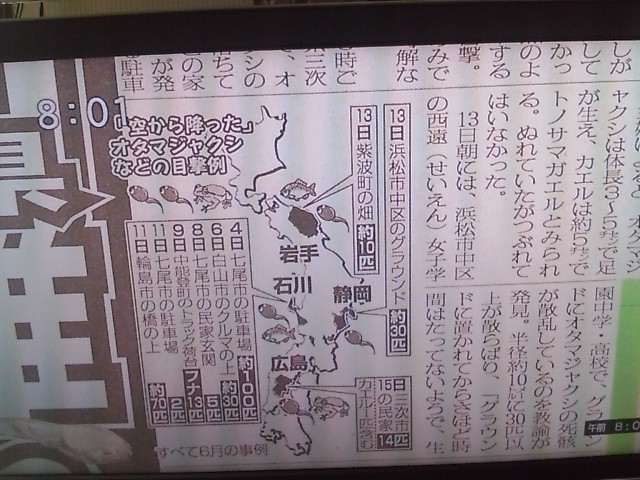 8:01
「空から降った」
オタマジャクシ
などの目撃例
13日 浜松市中区のグラウンド 約30匹
13日 紫波町の畑 約10匹
岩手
石川
静岡
広島
4日 七尾市の駐車場 約100匹
6日 白山市のクルマの上 約30匹
8日 七尾市の民家玄関 5匹
9日 中能登町のトラック荷台 フナ13匹
11日 七尾市の駐車場 2匹
11日 輪島市の橋の上 約70匹
15日 三次市の民家 14匹
カエル1匹含む
すべて6月の事例
しが
して
かっ
のよ
する
撃。
みで
解な
ャクシは体長3〜5㌢で足
が生え、カエルは約5㌢で
トノサマガエルとみられ
る。ぬれていたがつぶれて
はいなかった。
13日朝には、浜松市中区
の西遠（せいえん）女子学
園中学・高校で、グラウン
ドにオタマジャクシの死骸
が散乱しているのを教諭が
発見。半径約10㍍に30匹以
上が散らばり、「グラウン
ドに置かれてからさほど時
間はたってないようで、生
午前 8:0